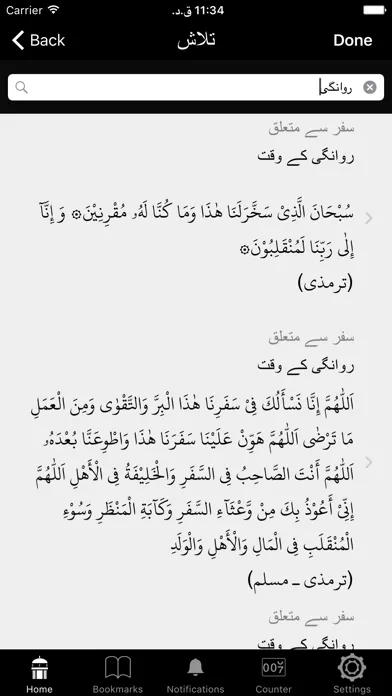 Carrier 11:34 ق.د.
Back تلاش Done
روانگی
سفر سے متعلق
روانگی کے وقت
سُبْحَانَ الَّذِیْ سَخَّرَلَنَا هٰذَا وَمَا كُنَّا لَهٗ مُقْرِنِیْنَ۞ وَ إِنَّآ
إِلٰی رَبِّنَا لَمُنْقَلِبُوْنَ۞
(ترمذی)
سفر سے متعلق
روانگی کے وقت
اَللّٰهُمَّ إِنَّا نَسْأَلُكَ فِیْ سَفَرِنَا هٰذَا الْبِرَّ وَالتَّقْوٰی وَمِنَ الْعَمَلِ
مَا تَرْضٰی اَللّٰهُمَّ هَوِّنْ عَلَیْنَا سَفَرَنَا هٰذَا وَاطْوِعَنَّا بُعْدَهٗ
اَللّٰهُمَّ أَنْتَ الصَّاحِبُ فِی السَّفَرِ وَالْخَلِیْفَةُ فِی الْأَهْلِ اَللّٰهُمَّ
إِنِّیْ أَعُوْذُ بِكَ مِنْ وَّعْثَآءِ السَّفَرِ وَكَآبَةِ الْمَنْظَرِ وَسُوْءِ
الْمُنْقَلَبِ فِی الْمَالِ وَالْأَهْلِ وَالْوَلَدِ
(ترمذی ـ مسلم)
سفر سے متعلق
روانگی کے وقت
Home Bookmarks Notifications Counter Settings